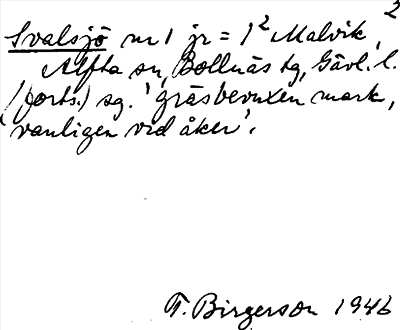 2
Svalsjö nr 1 jr = 1² Malvik,
Alfta sn, Bollnäs tg, Gävl. l.
(forts.) sg. 'gräsbevuxen mark,
vanligen vid åker'.
T. Birgerson 1946